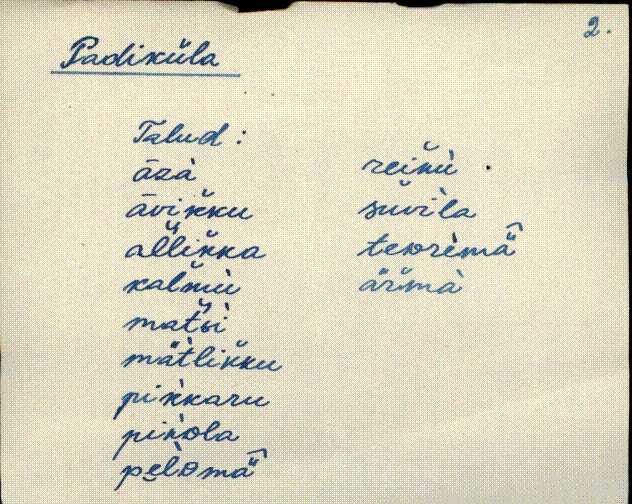 2.
Padiküla
Talud:
āzà
āvik̆ku
al̆lik̆ka
kal̆mù
mat̆sì
mät̀lik̆ku
pik̀karu
pik̀ola
pe̮l̀ɒmä̂
rein̆ù
sŭvìla
teɒrèmä̂
är̆mà